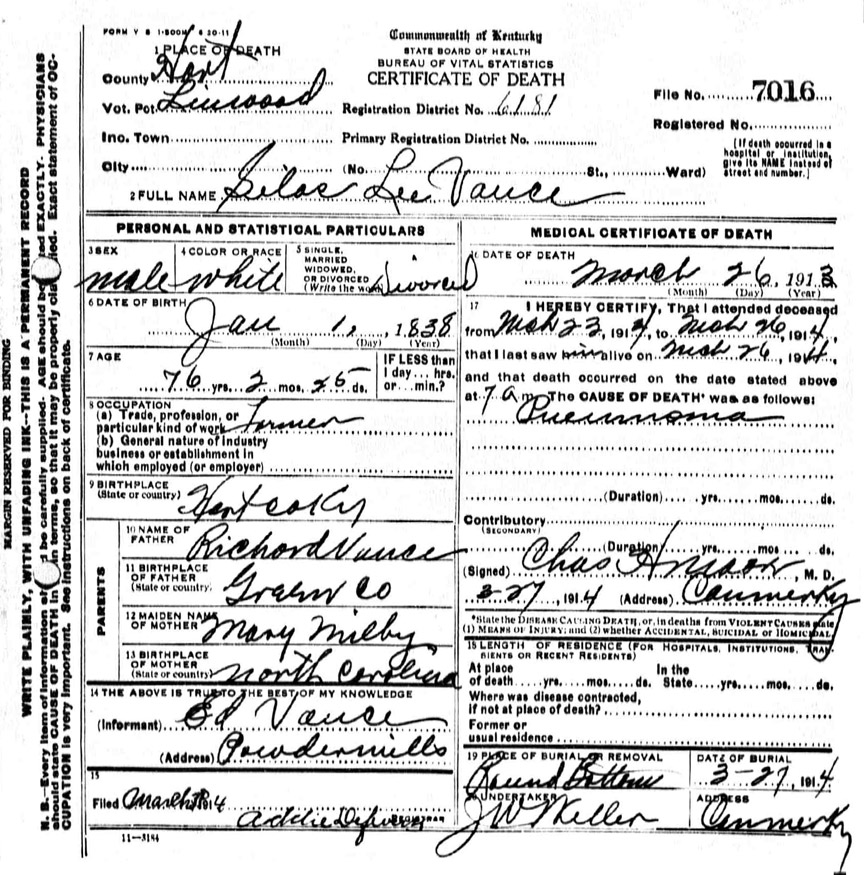 FORM V S 1-500M 6 20-11
Commonwealth of Kentucky
STATE BOARD OF HEALTH
BUREAU OF VITAL STATISTICS
CERTIFICATE OF DEATH
1 PLACE OF DEATH
County Hart
Vot. Pct. Linwood Registration District No. 6181 File No. 7016
Inc. Town Primary Registration District No. Registered No.
City (No. St., Ward)
[If death occurred in a hospital or institution, give its NAME instead of street and number.]
2 FULL NAME Silas Lee Vance
PERSONAL AND STATISTICAL PARTICULARS
3 SEX male
4 COLOR OR RACE white
5 SINGLE, MARRIED WIDOWED, OR DIVORCED (Write the word) Divorced
6 DATE OF BIRTH
Jan 1, 1838
(Month) (Day) (Year)
7 AGE
76 yrs. 2 mos. 25 ds.
IF LESS than
1 day... hrs.
or... min.?
8 OCCUPATION
(a) Trade, profession, or
particular kind of work farmer
(b) General nature of industry
business or establishment in
which employed (or employer)
9 BIRTHPLACE
(State or country) Hart co Ky
PARENTS
10 NAME OF
FATHER Richard Vance
11 BIRTHPLACE
OF FATHER
(State or country) Green Co
12 MAIDEN NAME
OF MOTHER Mary Milby
13 BIRTHPLACE
OF MOTHER
(State or country) North Carolina
14 THE ABOVE IS TRUE TO THE BEST OF MY KNOWLEDGE
(Informant) Ed Vance
(Address) Powdermills
15
Filed March 1914
Addie
REGISTRAR
11-3184
MEDICAL CERTIFICATE OF DEATH
16 DATE OF DEATH
March 26, 1913
(Month) (Day) (Year)
17 I HEREBY CERTIFY, That I attended deceased
from Mch 23, 1914, to Mch 26, 1914,
that I last saw him alive on Mch 26, 1914,
and that death occurred on the date stated above
at 7 a m. The CAUSE OF DEATH* was as follows:
Pneumonia
(Duration) yrs. mos. ds.
Contributory
(SECONDARY)
(Duration) yrs. mos. ds.
(Signed) Chas , M. D.
3-27, 1914 (Address) Canmer Ky
*State the DISEASE CAUSING DEATH, or, in deaths from VIOLENT CAUSES state
(1) MEANS OF INJURY; and (2) whether ACCIDENTAL, SUICIDAL or HOMICIDAL
18 LENGTH OF RESIDENCE (FOR HOSPITALS, INSTITUTIONS, TRAN-
SIENTS OR RECENT RESIDENTS)
At place In the
of death yrs. mos. ds. State yrs. mos. ds.
Where was disease contracted,
if not at place of death?
Former or
usual residence
19 PLACE OF BURIAL OR REMOVAL
Round Bottom
DATE OF BURIAL
3-27, 1914
20 UNDERTAKER
J W Keller
ADDRESS
Canmer Ky
MARGIN RESERVED FOR BINDING
WRITE PLAINLY, WITH UNFADING INK-THIS IS A PERMANENT RECORD
N. B.-Every item of information should be carefully supplied. AGE should be stated EXACTLY. PHYSICIANS
should state CAUSE OF DEATH in plain terms, so that it may be properly classified. Exact statement of OC-
CUPATION is very important. See instructions on back of certificate.